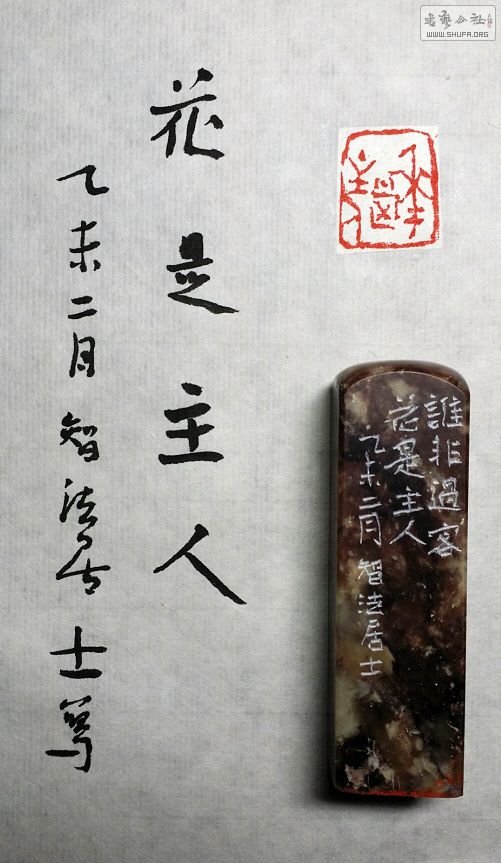 書藝公社
WWW.SHUFA.ORG
花是主人
誰非過客
花是主人
乙未二月智法居士
花是主人
乙未二月智法居士篤